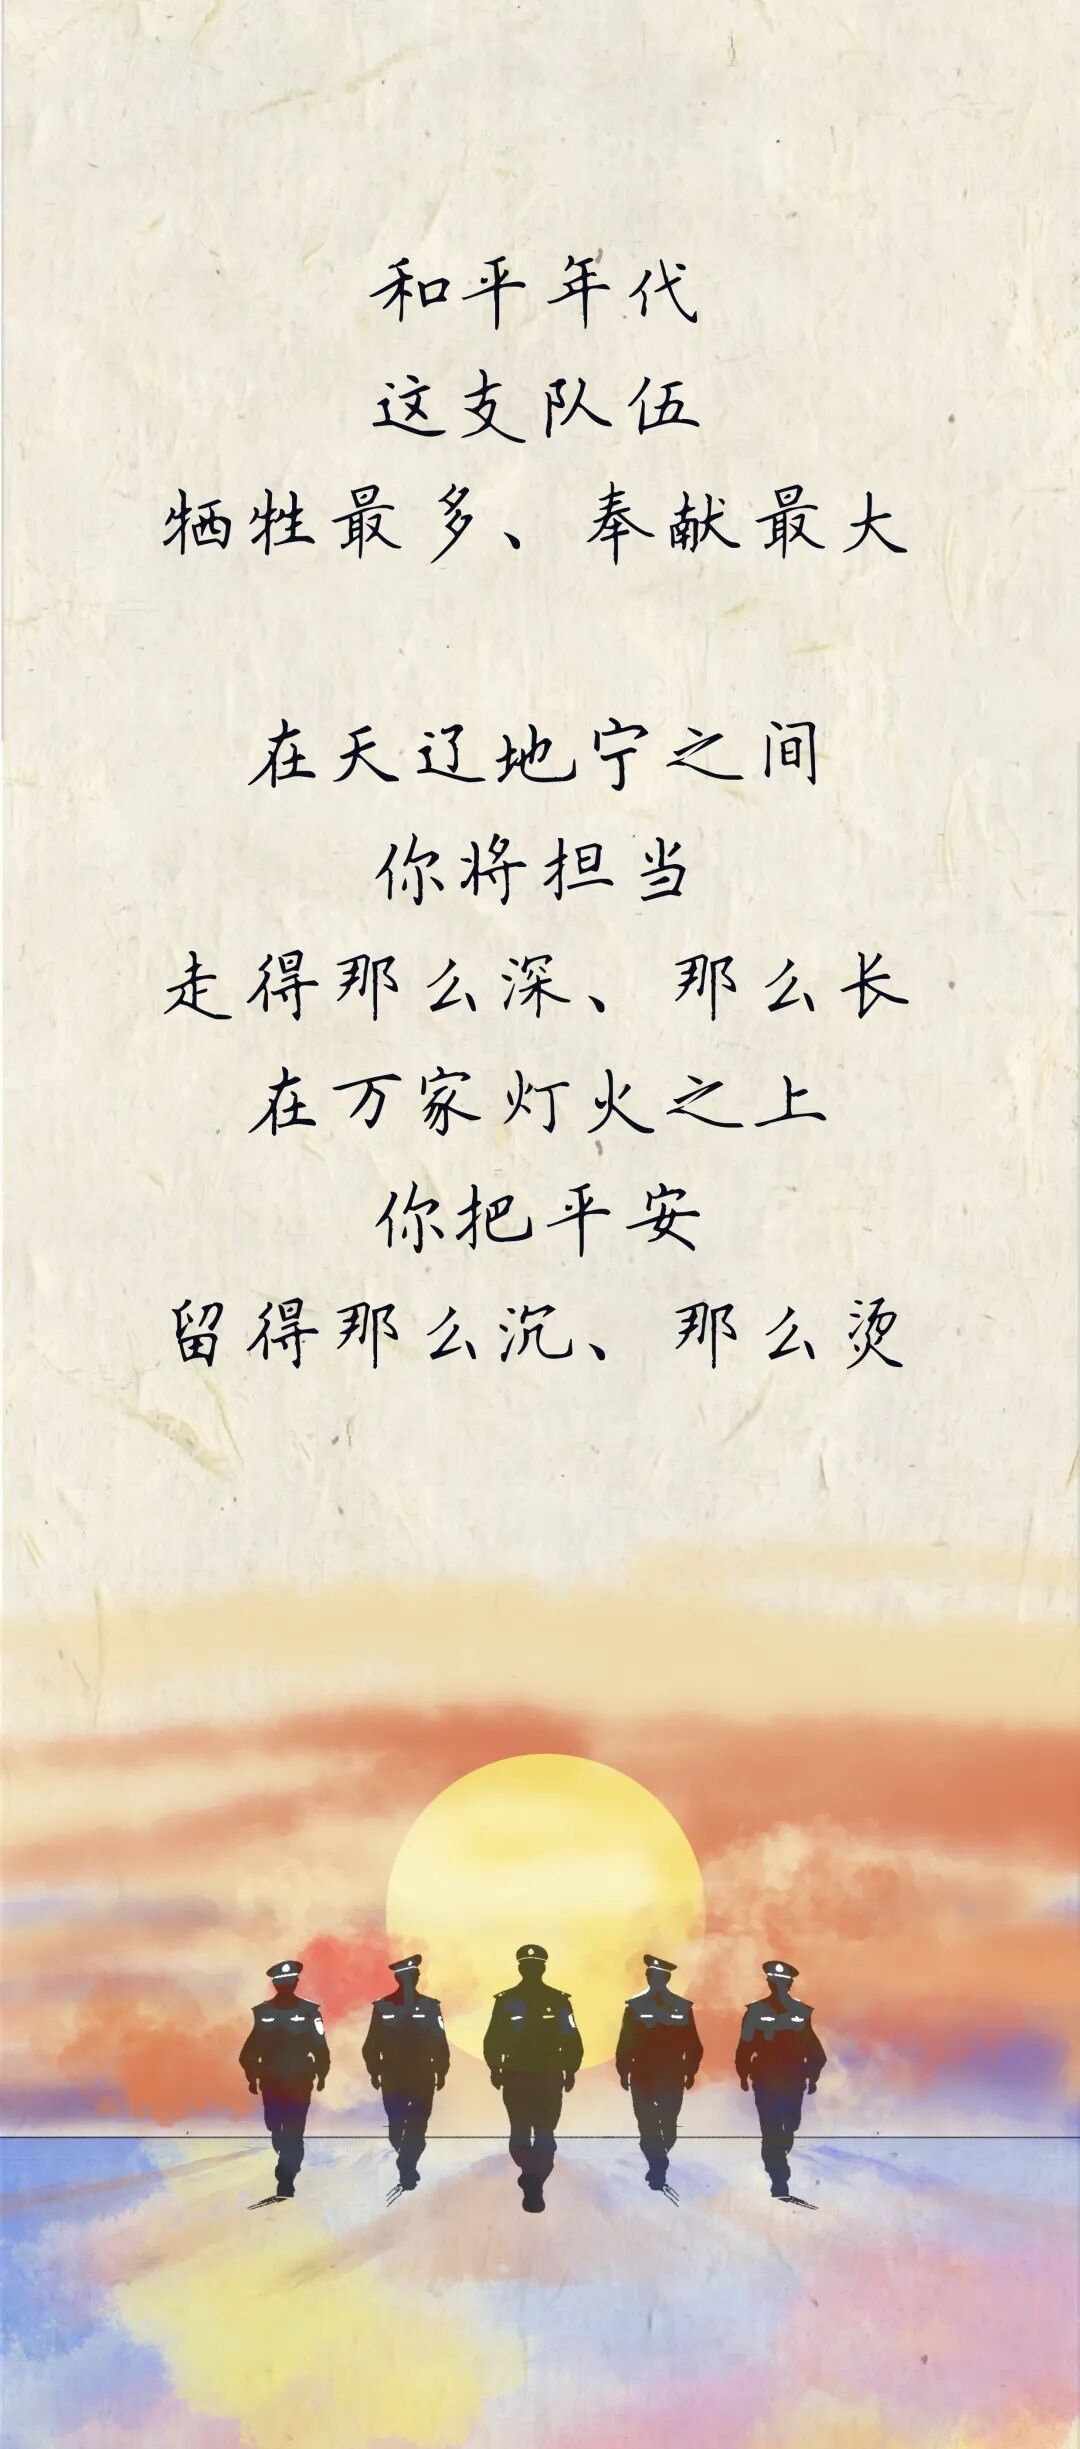 和平年代
这支队伍
牺牲最多、奉献最大
在天辽地宁之间
你将担当
走得那么深、那么长
在万家灯火之上
你把平安
留得那么沉、那么烫